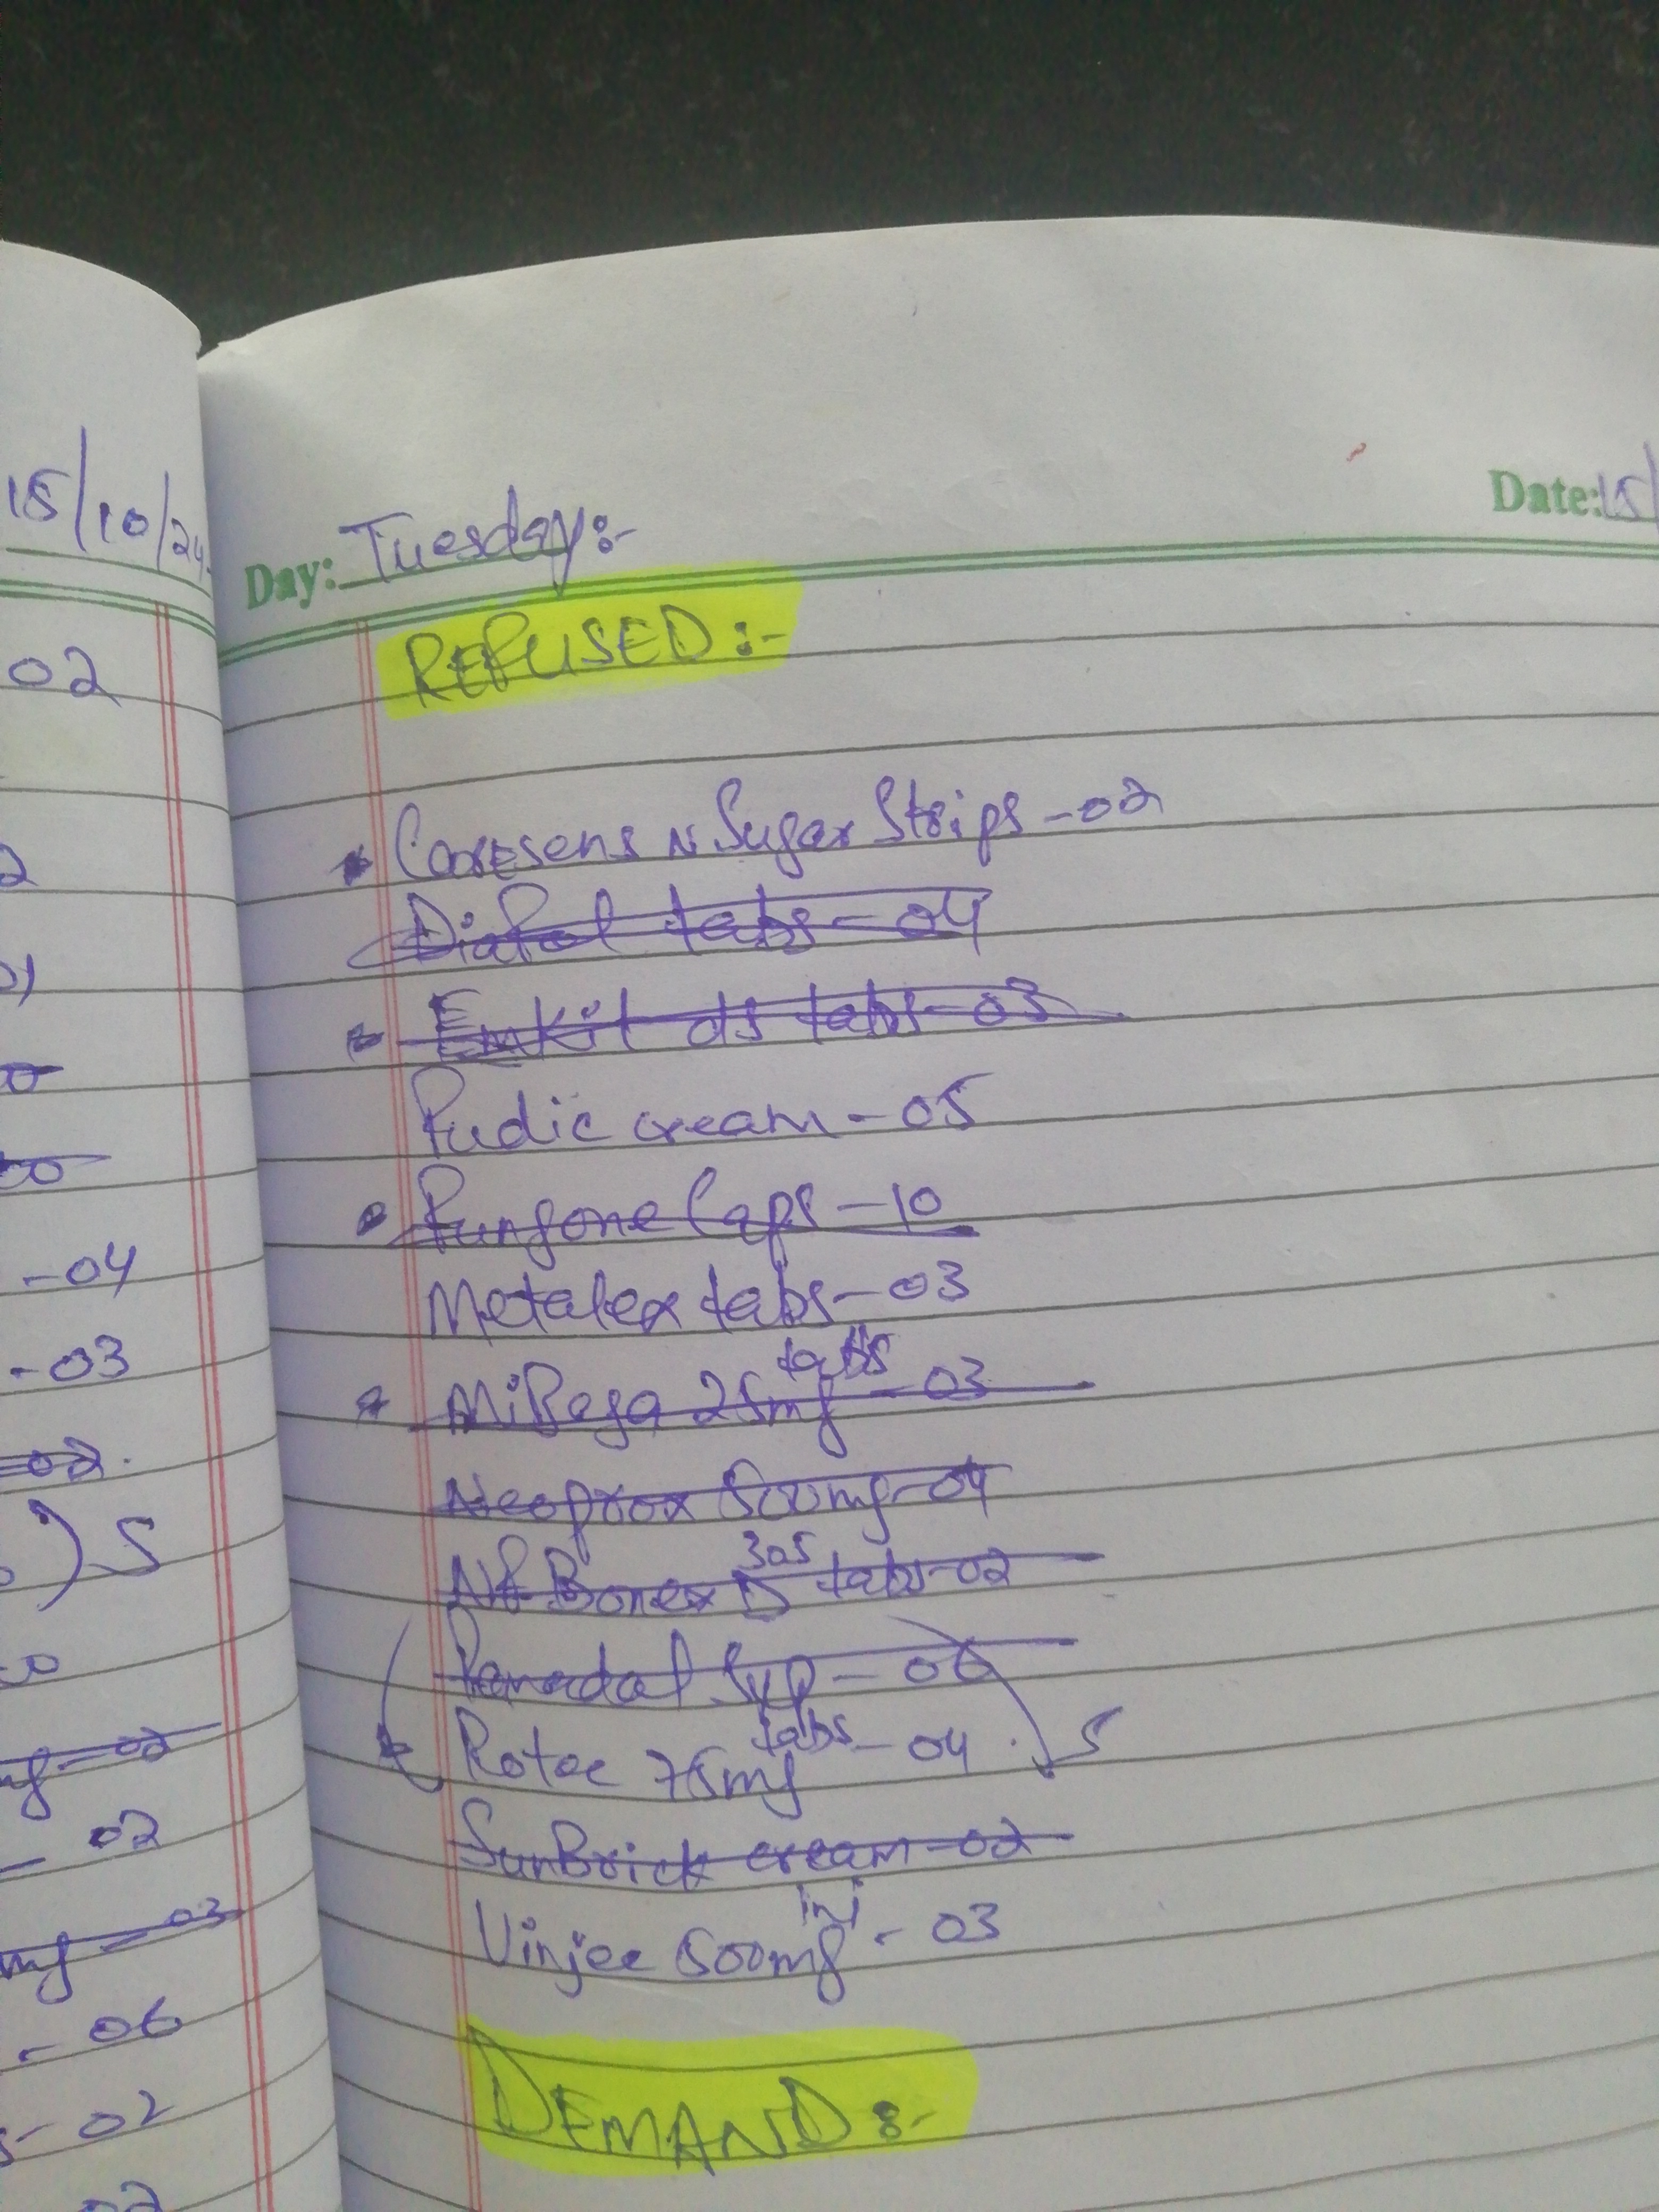 15/10/24
02
2
01
00
-04
-03
=02.
) S
mg-02
- 02
mg-03
- 06
s- 02
02
Day: Tuesday:-
Date: 15/
REFUSED:-
Caresens N Sugar Strips -02
Diafol tabs -04
Emkit ds tabs -03
Fudic cream - 05
Fungone Caps -10
Metalex tabs -03
MiRega 25mg tabs -03
Neoprox 500mg -04
NF Bonex D 30s tabs -02
Panadol Syp - 06
Rotec 75mg tabs - 04 . S
SunBrick cream -02
Vinjec 500mg inj - 03
DEMAND:-